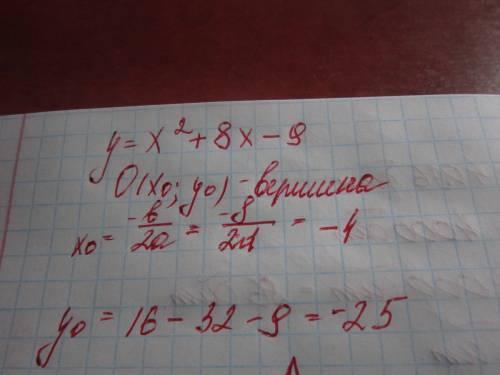 y = x² + 8x − 9
O(x₀; y₀) - вершина
x₀ = -в/2a = -8/2·1 = -4
y₀ = 16 − 32 − 9 = -25